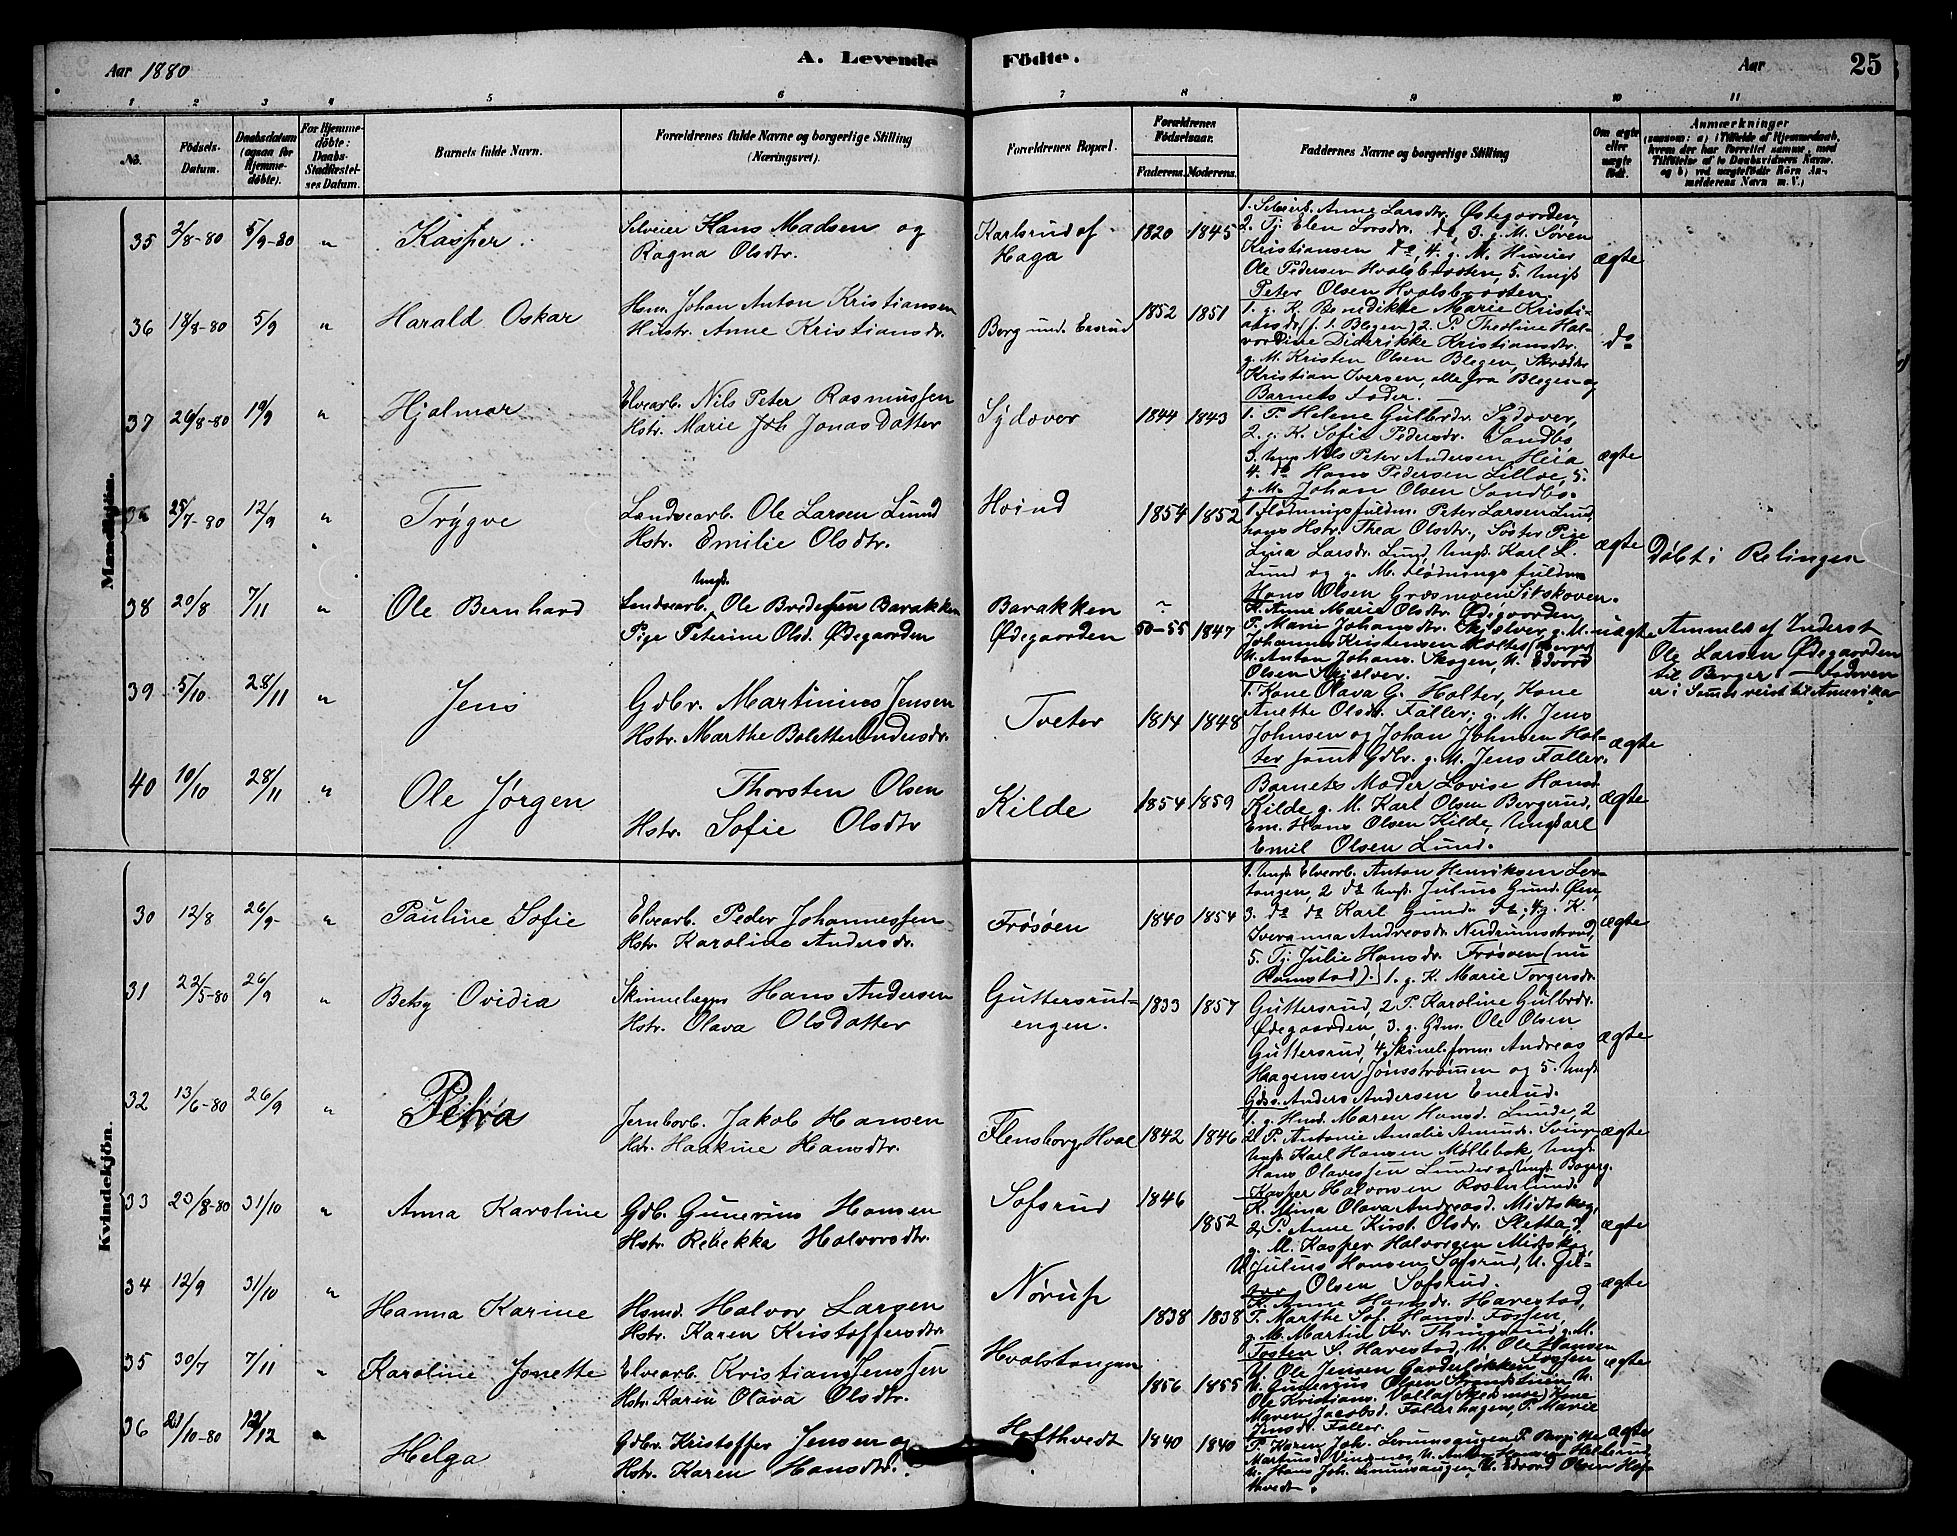 Aar 1880
A. Levende Födte.
Aar 25
1 2 3 4 5 6 7 8 9 10 11
No. Födsels-Datum. Daabsdatum (ogsaa for Hjemme-döbte). For Hjemme-döbte: Daabs-Stadfæstel-ses Datum. Barnets fulde Navn. Forældrenes fulde Navne og borgerlige Stilling (Næringsvei). Forældrenes Bopæl. Forældrenes Födselsaar. Faderens. Moderens. Faddernes Navne og borgerlige Stilling Om ægte eller uægte födt. Anmærkninger
(saasom: a) i Tilfælde af Hjemmedaab,
hvem der har forrettet samme, med
Tilföielse af to Daabsvidners Navne.
og b) ved uægtefödte Börn An-
melderens Navn m. V.)
Mandkjön.
35 2/8-80 5/9-80 " Kasper.
Selveier Hans Madsen og
Ragna Olsdtr.
Karlsrud af
Haga
1820 1845
1. Selveiert. Anne Larsdtr. Østegaarden,
2. Tj. Elen Larsdtr. do, 3. g. M. Søren
Kristiansen do, 4. g. M. Huseier
Ole Pedersen Hvalsbraaten, 5. Ungk
Peter Olsen Hvalsbraaten.
ægte
36 18/8-80 5/9 " Harald Oskar
Hsm. Johan Anton Kristiansen
Hustr. Anne Kristiansdr.
Berg und. Ersrud
1852 1851
1. g. K. Benedikte Marie Kristi-
ansdr (f. s. Blegen) 2. P. Theoline Hal-
vordine Diderikke Kristiansdtr.
g. M. Kristen Olsen Blegen, Skrædr
Kristian Iversen, alle fra Blegen og
Barnets Fader.
do
37 26/8-80 19/9 " Hjalmar
Elvearb. Nils Peter Rasmussen
Hstr. Marie Joh Jonas Datter
Sydover
1844 1843
1. P. Helene Gulbrdr. Sydover,
2. g. K. Sofie Pedersdr. Sandbo
3. Ungk Nils Peter Andersen Heia
4. do Hans Pedersen Lilloe, 5.
g. M. Johan Olsen Sandbo.
ægte
25/7-80 12/9 " Trygve
Landsearb. Ole Larsen Lund
Hstr. Emilie Olsdtr.
Hvind
1854 1852
1. Flødningsfuldm. Peter Larsen Lund,
hans Hstr. Thea Olsdtr., Søster Pige
Lina Larsdr. Lund, Ungk. Karl L.
Lund og g. M. Flødnings fuldm
Hans Olsen Græsmoen Sitskoven.
ægte
Døbt i Rolingen
38 20/8 7/11 " Ole Bernhard
Ungk.
Landsearb. Ole Bredesen Barakken
Pige Peterine Olsd. Ødegaarden
Barakken
Ødegaarden
50-55 1847
K. Anne Marie Olsdtr. Ødegaarden,
P. Marie Johansdtr. Skjelver, g. M.
Johannes Kristensen
U. Anton Johans. Skogen, U. Edvard
Olsen Skjelver.
uægte
Anmeld af Inderst
Ole Larsen Ødegaarden
til Berger. — Faderen
er i Somr reist til Amerika
39 5/10 28/11 " Jens
Gdbr. Martinius Jensen
Hstr. Marthe Bolette Andersdr.
Tveter
1814 1848
1. Kone Olava G. Holter, Kone
Anette Olsdr. Faller, g. M. Jens
Johnsen og Johan Johnsen Hol-
ter samt Gdbr. g. M. Jens Faller.
ægte
40 10/10 28/11 " Ole Jørgen
Thorsten Olsen
Hstr. Sofie Olsdtr
Kilde
1854 1859
Barnets Moder, Lovise Hansd
Kilde, g. M. Karl Olsen Bergerud,
Em. Hans Olsen Kilde, Ungkarl
Emil Olsen Lund.
ægte
Kvindekjön.
30 12/8 26/9 " Pauline Sofie
Elvearb. Peder Johannessen
Hstr. Karoline Andersdr.
Frøsøen
1840 1854
1. Ungk Elvearb. Anton Henriksen Ler-
tangen, 2 do Ungk. Julius Gund. Øen,
3. do do Karl Gunds do; 4g. K.
Iveranna Andreasdr. Nerdrumstrand,
5. Tj. Julie Hansdr. Frøsøen (nu
Ramstad).
ægte
31 22/5-80 26/9 " Betsy Ovidia
Skinnelægger Hans Andersen
Hstr. Olava Olsdatter
Guttersrud-
engen.
1833 1857
1. g. K. Marie Torgersdr.
Guttersrud, 2 P. Karoline Gulbrdr.
Ødegaarden, 3. g. Gdm. Ole Olsen
Guttersrud, 4. Skinel.form. Andreas
Haagensen Jonsstrømmen og 5. Ungk
Gdbs. Anders Andersen Enerud.
ægte
32 13/6-80 26/9 " Petra
Jernbarb. Jakob Hansen
Hstr. Haakine Hansdtr.
Flensborg, Hval
1842 1846
1. g. Husd. Maren Hansd. Lunde, 2
P. Antonie Amalie Amunds.
Ungk. Karl Hansen Møllebok, Ungk.
Hans Olavessen Lunder og Ungk. Bagerg.
Kasper Halvorsen Rosenlund.
ægte
33 23/8-80 31/10 " Anna Karoline
Gdb. Gunerius Hansen
Hstr. Rebekka Halvorsdtr.
Sofsrud
1846 1852
K. Mina Olava Andreasd. Midtskog,
2 P. Anne Kirst. Olsdr. Sletta,
g. M. Kasper Halvorsen Midtskog,
U. Julius Hansen Sofsrud, U.
Olsen Sofsrud.
ægte
34 12/9 31/10 " Hanna Karine
Hsmd. Halvor Larsen
Hstr. Karen Kristoffersdtr.
Nørup
1838 1838
K. Anne Hansdr. Harestad,
P. Marthe Sof. Hansd. Fossen,
g. M. Martin Kr. Thingstad, g. M.
Tosten S. Harestad, U. Ole Hansen
Fossen
ægte
35 30/7 7/11 " Karoline Jonette
Elvearb. Kristian Jenssen
Hstr. Karen Olava Olsdtr.
Hvalstangen
1856 1855
U. Ole Jensen Garderløkken
U. Gunerius Olsen Strandstuen, U.
Ole Kristians. Valla (Skedsmoe), Kone
Maren Jacobsd. Fallerhagen, P. Marie
Jensdr. Faller.
ægte
36 23/10-80 12/12 " Helga
Gdbr. Kristoffer Jensen og
Hstr. Karen Hansdtr.
Hofthvedt
1840 1840
P. Karen Joh. P. Bergitte
Martinsd U. Anton Hansen
U. Hans Joh. U. Edvard Olsen Hof-
thvedt.
ægte